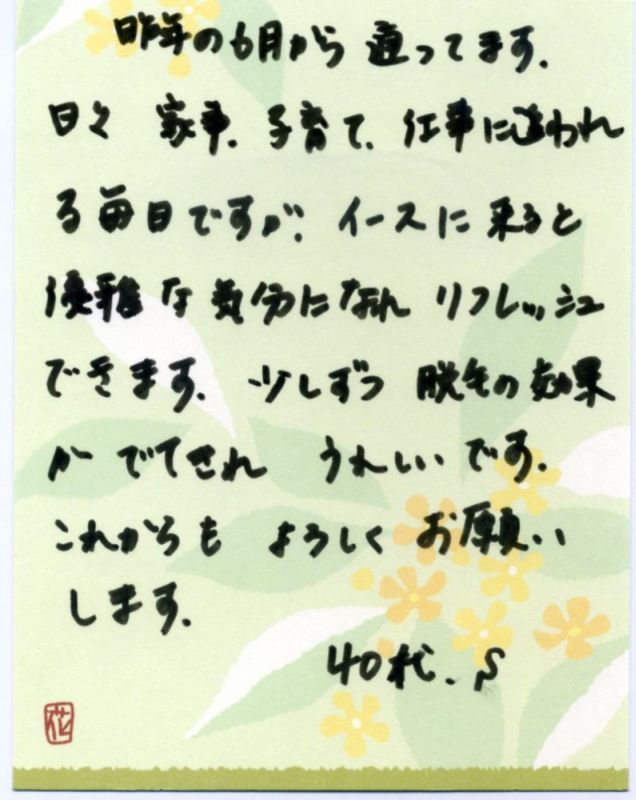 昨年の6月から 通ってます.
日々 家事、子育て、仕事に追われ
る毎日ですが、イースに来ると
優雅な気分になれ リフレッシュ
できます。少しずつ 脱毛の効果
が でてきれ うれしいです.
これからも よろしく お願い
します.
40代. S
花